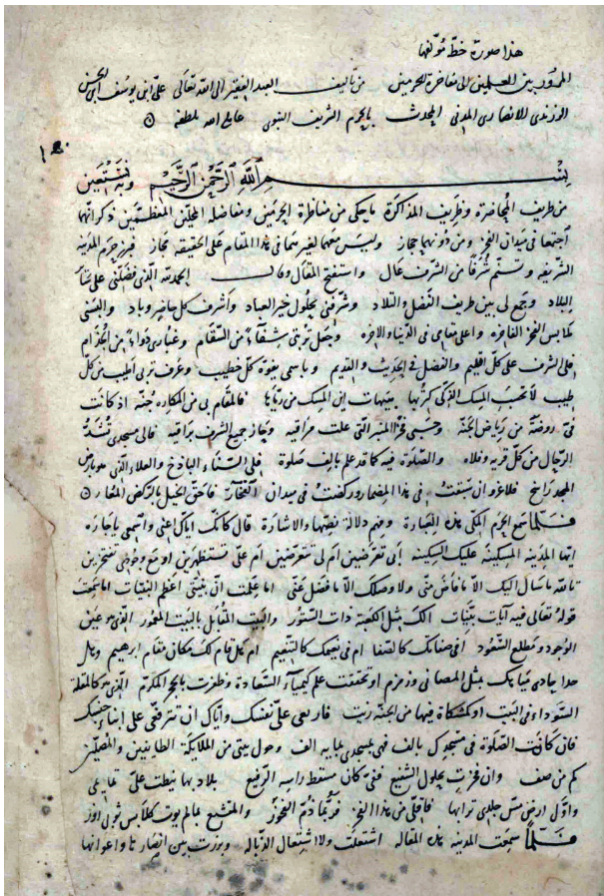 هذا صورة خط مؤلفها
المرور بين العلمين الى مفاخرة الحرمين من تأليف العبد الفقير الى الله تعالى على بن يوسف ابن الحسن
الزرندى الانصارى المدنى المحدث بالحرم الشريف النبوى عامله الله بلطفه
بسم الله الرحمن الرحيم وبه نستعين
من طريف المحاضرة وظريف المذاكرة ما يحكى من مناظرة الحرمين ومفاضل المحلين المعظمين ذكر انهما
اجتمعا فى ميدان الفخر ومن دونهما حجاز وليس معهما لغيرهما فى هذا المقام على الحقيقة مجاز فبرز حرم المدينة
الشريفة وتسنم شرفا من الشرف عال واستفتح المقال وقال الحمد لله الذى فضلنى على سائر
البلاد وجمع لى بين طريف الفضل والتلاد وشرفنى بحلول خير العباد واشرف كل حاضر وباد والبسنى
ملابس الفخر الفاخرة واعلى مقامى فى الدنيا والاخرة وجعل تربتى شفاء من السقام وغبارى دواء من الجذام
فلى الشرف على كل اقليم والفضل فى الحديث والقديم وباسمى يفوه كل خطيب وعرف تربى اطيب من كل
طيب لا تحسب المسك الذكى كتربها هيهات اين المسك من رياها فالمقام بى من المكاره جنة اذ كانت
فى روضة من رياض الجنة وحسبى فخرا المنبر الذى علت مراقيه وحاز جميع الشرف راقيه فالى مسجدى تشد
الرحال من كل قرية وفلاة والصلوة فيه كما قد علم بالف صلوة فلى السناء الباذخ والعلاء الذى هو بارض
المجد راسخ فلا غرو ان سبقت فى هذا المضمار وركضت فى ميدان الفخار فاحق الخيل بالركض المعار
فلما سمع الحرم المكى هذه العبارة وفهم دلالة نصها والاشارة قال كانك اياى اعنى واسمعى يا جاره
ايتها المدينة المسكينة عليك السكينة أبى تعرضين ام لى تتعرضين ام على تستظهرين او مع وجودى تفتخرين
تالله ما سال اليك الا ما فاض منى ولا وصلك الا ما فضل عنى اما علمت ان بيتى اعظم البنيات اما سمعت
قوله تعالى فيه آيات بينات الك مثل الكعبة ذات الستور والبيت المقابل بالبيت المعمور التى هى عين
الوجود ومطلع السعود افى صفاتك كالصفا ام فى نعيمك كالتنعيم ام هل قام لك مكان مقام ابرهيم وهل
حدا حادى مياهك بمثل المصافى وزمزم او تحققت علم كيمياء السعادة وظفرت بالحجر المكرم الذى هو كالمقلة
السوداء فى البيت او كمشكاة فيها من الجنة زيت فاربعى على نفسك واياك ان تترفعى على ابناء جنسك
فان كانت الصلوة فى مسجدك بالف فهى بمسجدى بماية الف وحول بيتى من الملايكة الطايفين والمصلين
كم من صف وان فخرت بحلول الشفيع ففى كان مسقط راسه الرفيع بلاد بها نيطت على تمايمى
واول ارض مس جلدى ترابها فاقلى من هذا الفخر فربما ذم الفخور والمتشبع بمالم يؤت كلابس ثوبى زور
فلما سمعت المدينة هذه المقالة اشتعلت ولا اشتعال الذبالة وبرزت بين انصارها واعوانها